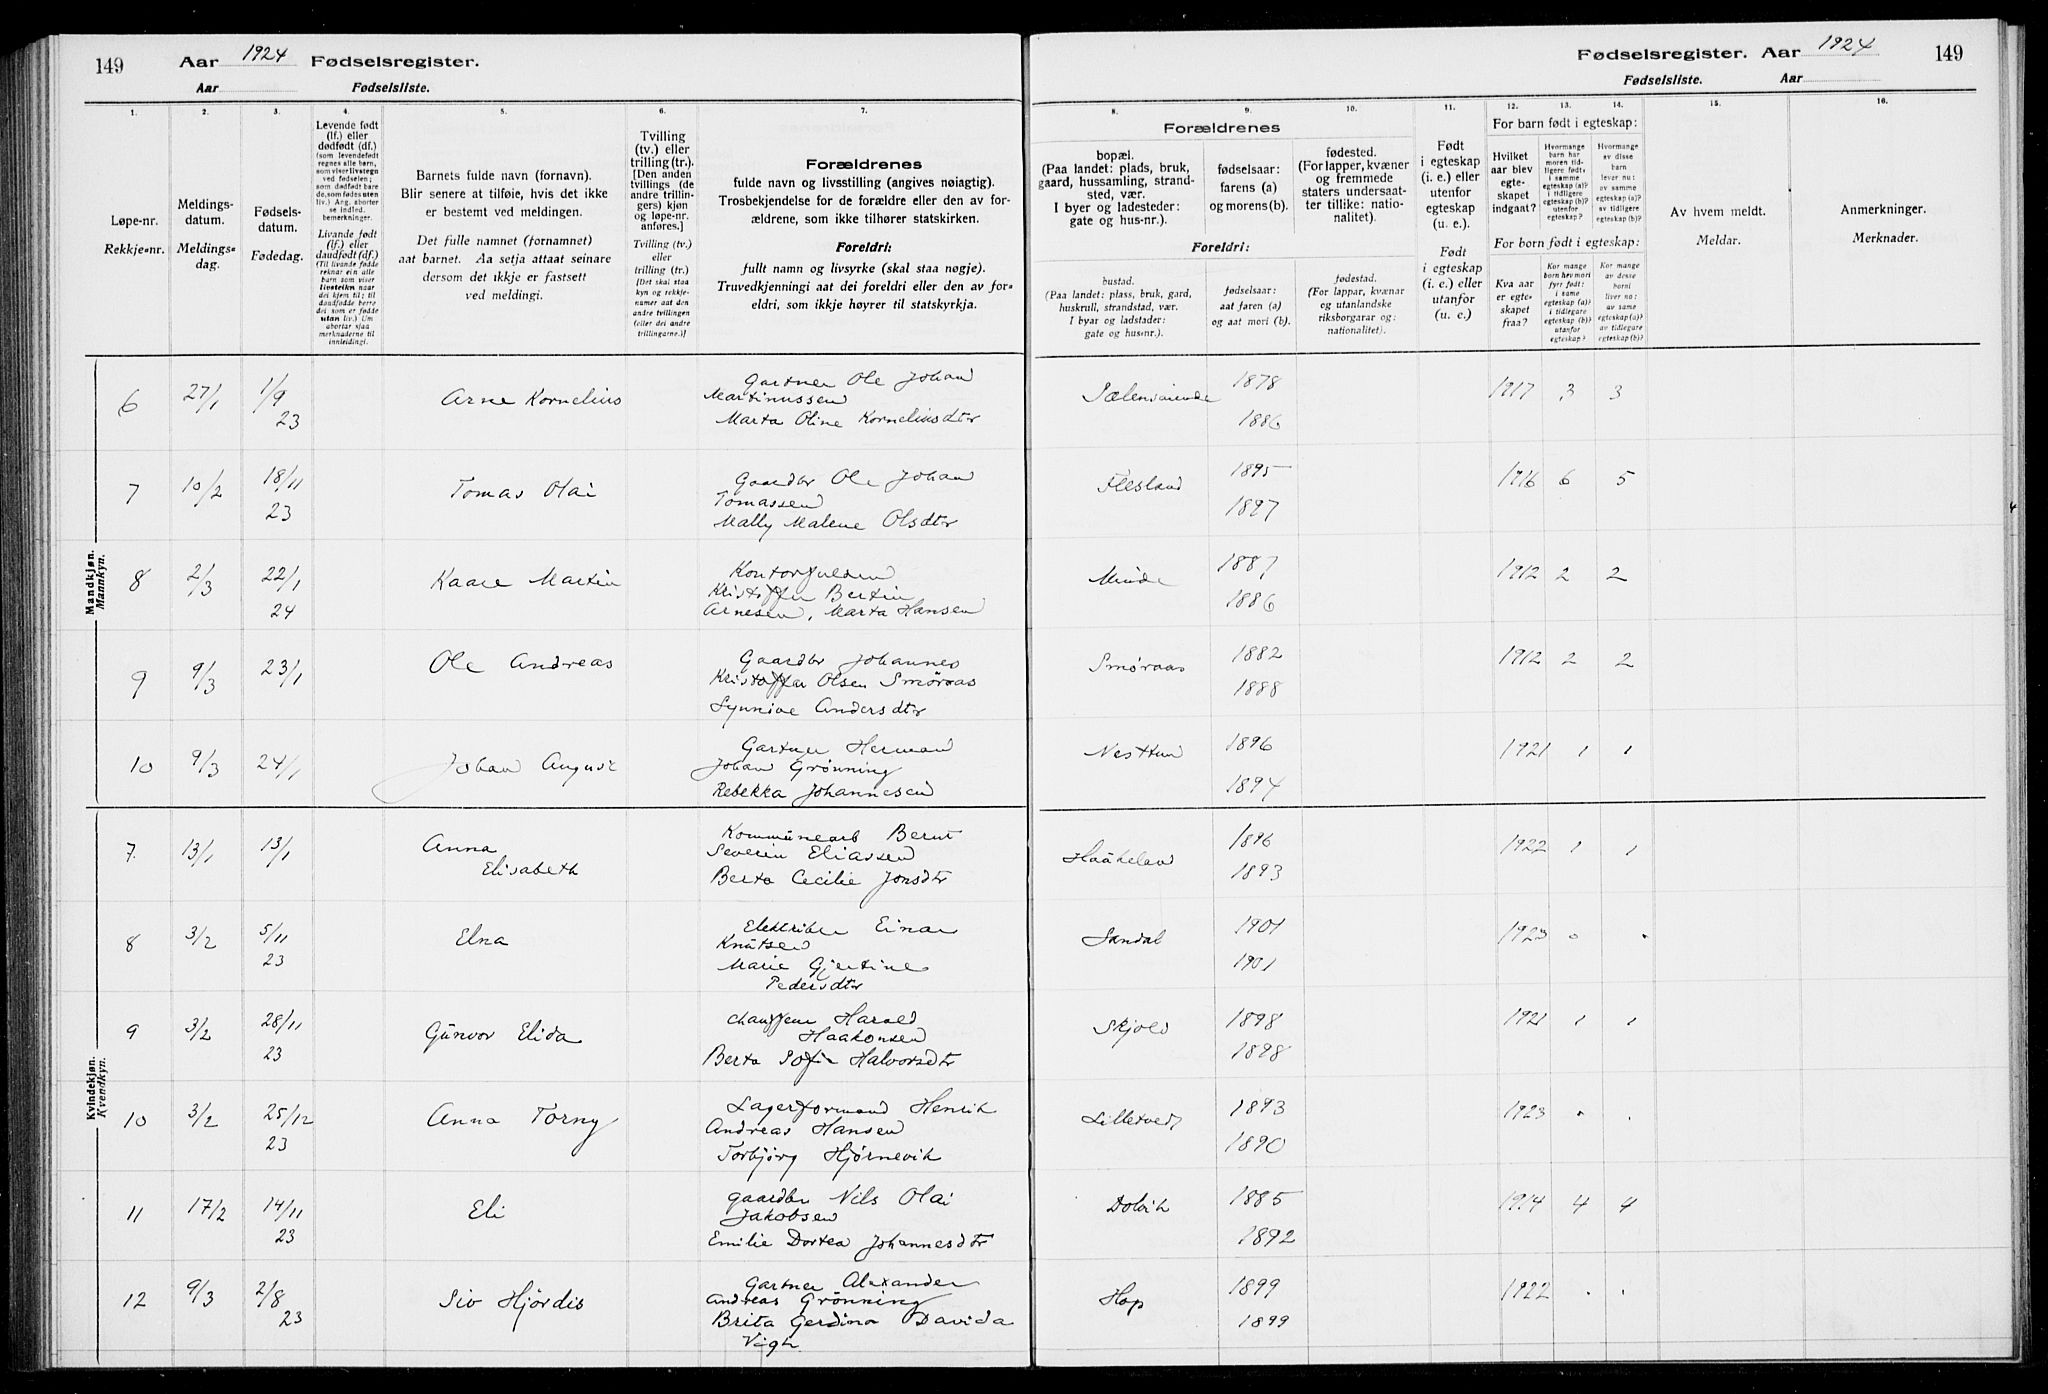 149
Aar 1924 Fødselsregister.
Aar Fødselsliste.
Fødselsregister. Aar 1924
149
Fødselsliste. Aar
1. 2. 3. 4. 5. 6. 7.
8. 9. 10. 11. 12. 13. 14. 15. 16.
Løpe-nr.
Rekkje-nr.
Meldings-
datum.
Meldings-
dag.
Fødsels-
datum.
Fødedag.
Levende født
(lf.) eller
dødfødt (df.)
(som levendefødt
regnes alle barn,
som viser livstegn
ved fødselen;
som dødfødt bare
de, som fødes uten
liv.) Ang. aborter
se indled.
bemerkninger.
Livande født
(lf.) eller
daudfødt (df.)
(Til livande fødde
reknar ein alle
barn som viser
livsteikn naar
dei kjem til; til
daudfødde berre
dei som er fødde
utan liv.) Um
abortar sjaa
merknaderne til
innleidingi.
Barnets fulde navn (fornavn).
Blir senere at tilføie, hvis det ikke
er bestemt ved meldingen.
Det fulle namnet (fornamnet)
aat barnet. Aa setja attaat seinare
dersom det ikkje er fastsett
ved meldingi.
Tvilling
(tv.) eller
trilling (tr.).
[Den anden
tvillings (de
andre trillin-
gers) kjøn
og løpe-nr.
anføres.]
Tvilling (tv.)
eller
trilling (tr.)
[Det skal staa
kyn og rekkje-
numer aat den
andre tvillingen
(eller dei andre
trillingarne.)]
Forældrenes
fulde navn og livsstilling (angives nøiagtig).
Trosbekjendelse for de forældre eller den av for-
ældrene, som ikke tilhører statskirken.
Foreldri:
fullt namn og livsyrke (skal staa nøgje).
Truvedkjenningi aat dei foreldri eller den av for-
eldri, som ikkje høyrer til statskyrkja.
Forældrenes
bopæl.
(Paa landet: plads, bruk,
gaard, hussamling, strand-
sted, vær.
I byer og ladesteder:
gate og hus-nr.).
fødselsaar:
farens (a)
og morens (b).
fødested.
(For lapper, kvæner
og fremmede
staters undersaat-
ter tillike: natio-
nalitet).
Foreldri:
bustad.
(Paa landet: plass, bruk, gard,
huskrull, strandstad, vær.
I byar og ladstader:
gate og hus-nr.).
fødselsaar:
aat faren (a)
og aat mori (b).
fødestad.
(For lappar, kvænar
og utanlandske
riksborgarar og:
nationalitet).
Født
i egteskap
(i. e.) eller
utenfor
egteskap
(u. e.).
Født
i egteskap
(i. e.) eller
utanfor
(u. e.)
For barn født i egteskap:
Hvilket
aar blev
egte-
skapet
indgaat?
Hvormange
barn har
moren tid-
ligere født:
i samme
egteskap (a)?
i tidligere
egteskap (b)?
utenfor
egteskap?
Hvormange
av disse
barn
lever nu:
av samme
egteskap (a)?
av tidligere
egteskap (b)?
For born født i egteskap:
Kva aar
er egte-
skapet
fraa?
Kor mange
born hev mori
fyrr født:
i same
egteskap (a)?
i tidlegare
egteskap (b)?
utanfor
egteskap?
Kor mange
av desse
borni
liver no:
av same
egteskap (a)?
av tidlegare
egteskap (b)?
Av hvem meldt.
Meldar.
Anmerkninger.
Merknader.
Mandkjøn.
Mannkyn.
6 27/1 1/9 23 Arne Kornelius
Gartner Ole Johan
Martinussen
Marta Oline Kornelius dtr
1878
1886
1917 3 3
7 10/2 18/11 23 Tomas Olai
Gaardbr Ole Johan
Tomassen
Mally Malene Olsdtr
Flesland
1895
1897
1916 6 5
8 2/3 22/1 24 Kaare Martin
Kristoffer Bertin
Arnesen, Marta Hansen
Minde
1887
1886
1912 2 2
9 9/3 23/1 Ole Andreas
Gaardbr Johannes
Kristoffer Olsen Smøraas
Synnive Andersdtr
Smøraas
1882
1888
1912 2 2
10 9/3 24/1 Johan August
Gartner Herman
Johan Grønning
Rebekka Johannesen
Nesttun
1896
1894
1921 1 1
Kvindekjøn.
Kvendkyn.
7. 13/1 13/1 Anna
Elisabeth
Kommunearb Bernt
Severin Eliassen
Berta Cecilie Jonsdtr
Haukeland
1896
1893
1922 1 1
8 3/2 5/11 23 Elna
Elektriker Einar
Knutsen
Marie Gjertine
Pedersdtr
Sandal
1901
1901
1923 . .
9 3/2 28/11 23 Gunvor Elida
chauffeur Harald
Haakonsen
Berta Sofie Halvorsdtr
Skjold
1898
1898
1921 1 1
10 3/2 25/12 23 Anna Torny
Lagerformand Henrik
Andreas Hansen
Torbjørg Hjørnevik
Lilletvedt
1893
1890
1923 . .
11 17/2 14/11 23 Eli
gaardbr Nils Olai
Jakobsen
Emilie Dortea Johannesdtr
Dolvik
1885
1892
1914 4 4
12 9/3 2/8 23 Siv Hjørdis
Gartner Alexander
Andreas Grønning
Brita Gerdina Davida
Vigh
Hop
1899
1899
1922 . .